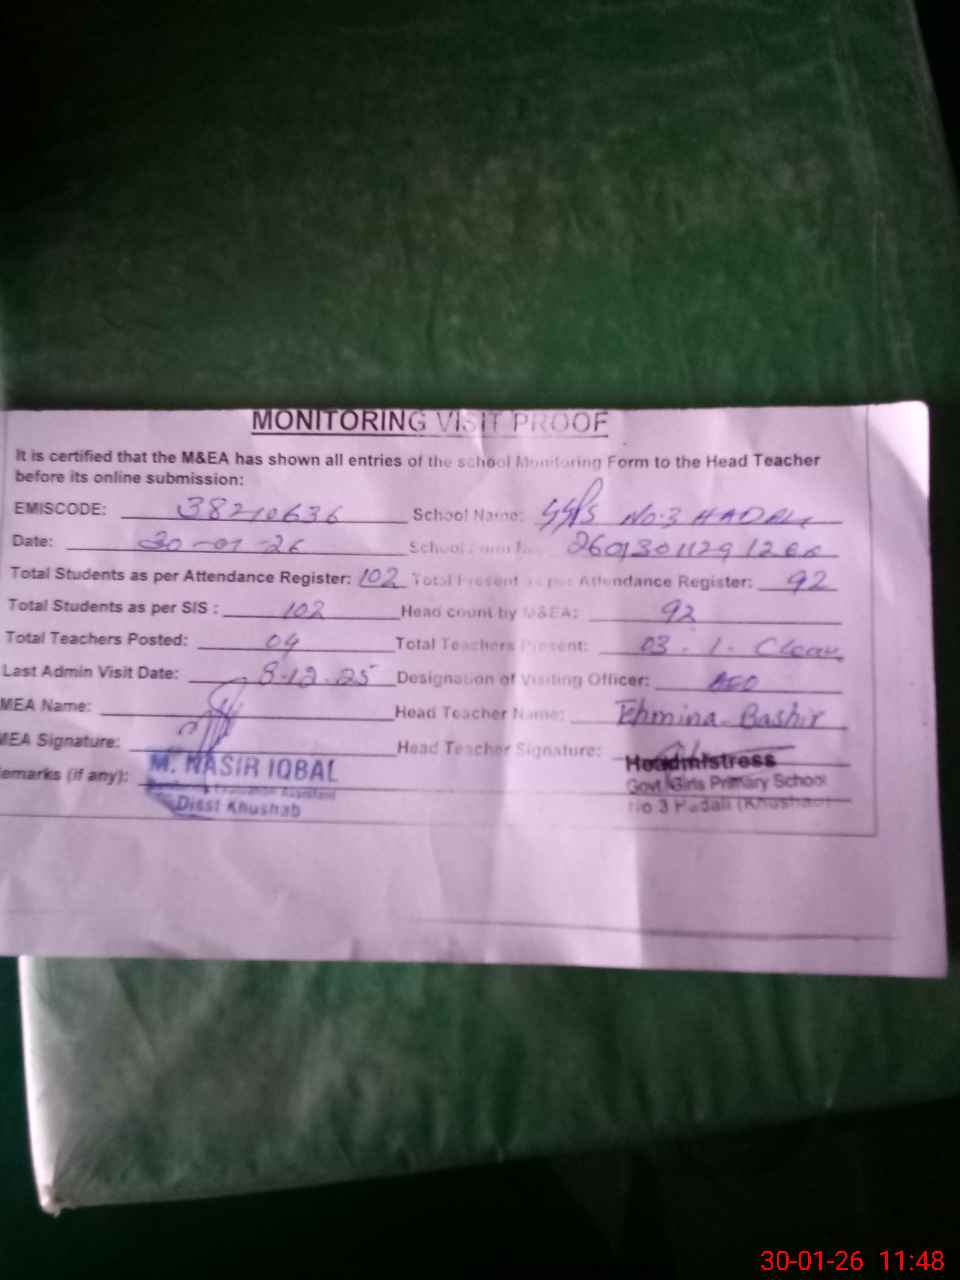 MONITORING VISIT PROOF
It is certified that the M&EA has shown all entries of the school Monitoring Form to the Head Teacher
before its online submission:
EMISCODE: 38210636 School Name: GGPS No.3 HADALI
Date: 30-01-26 School Form No.
Total Students as per Attendance Register: 102 Total Present as per Attendance Register: 92
Total Students as per SIS : 102 Head count by M&EA: 92
Total Teachers Posted: 04 Total Teachers Present: 03
Last Admin Visit Date: 8-12-25 Designation of Visiting Officer: AEO
MEA Name: Head Teacher Name: Tehmina Bashir
MEA Signature: Head Teacher Signature:
emarks (if any): M. NASIR IQBAL
Evaluation Assistant
Disst Khushab
Headmistress
Govt. Girls Primary School
No 3 Hadali (Khushab)
30-01-26 11:48